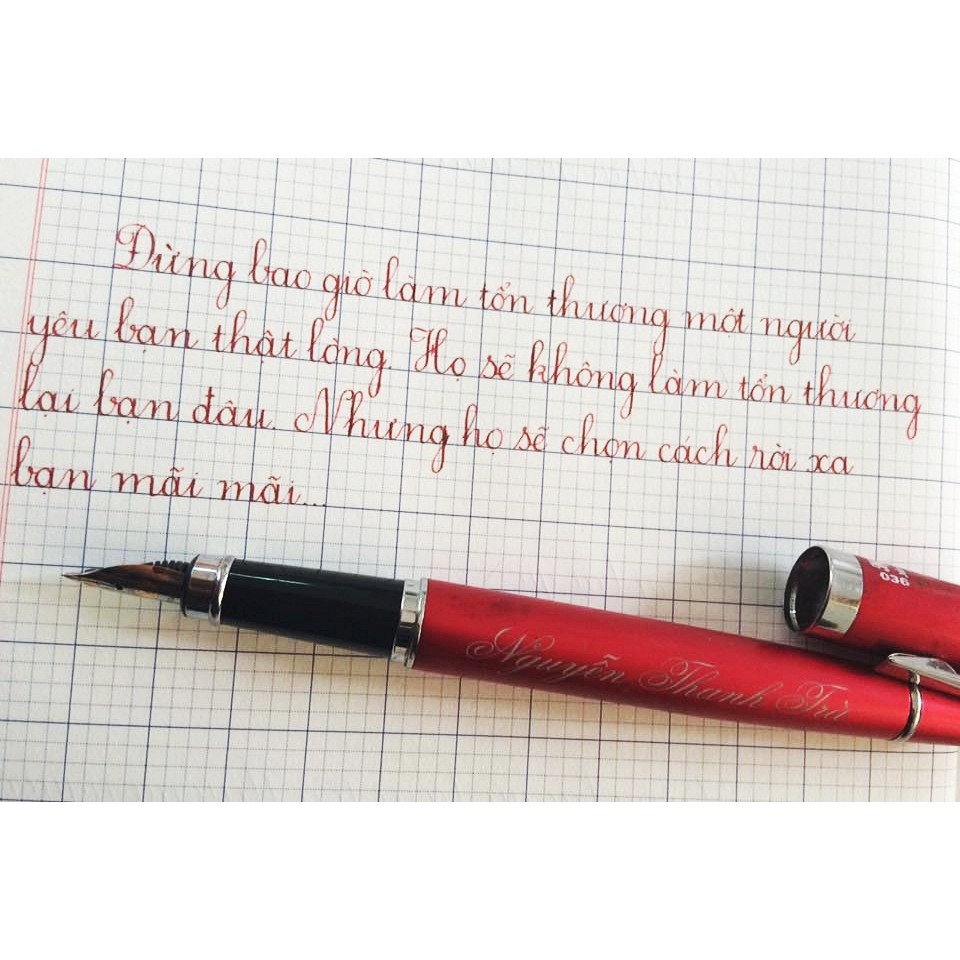 Đừng bao giờ làm tổn thương một người
yêu bạn thật lòng. Họ sẽ không làm tổn thương
lại bạn đâu. Nhưng họ sẽ chọn cách rời xa
bạn mãi mãi...
Nguyễn Thanh Trà
036